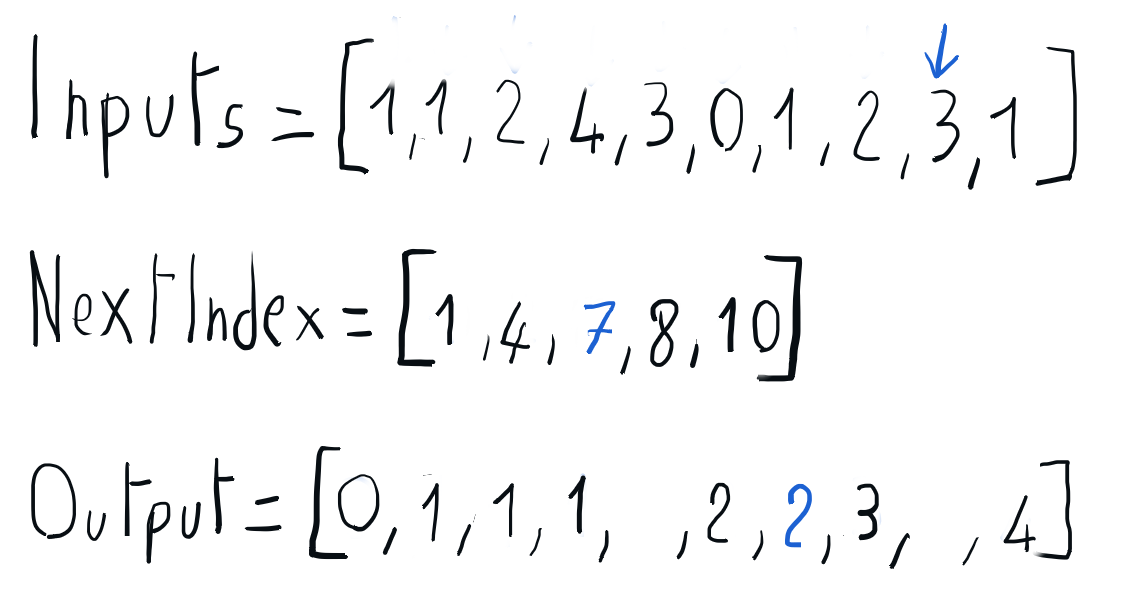 Inputs = [1,1,2,4,3,0,1,2,3,1]
NextIndex = [1,4,7,8,10]
Output = [0,1,1,1, ,2,2,3, ,4]